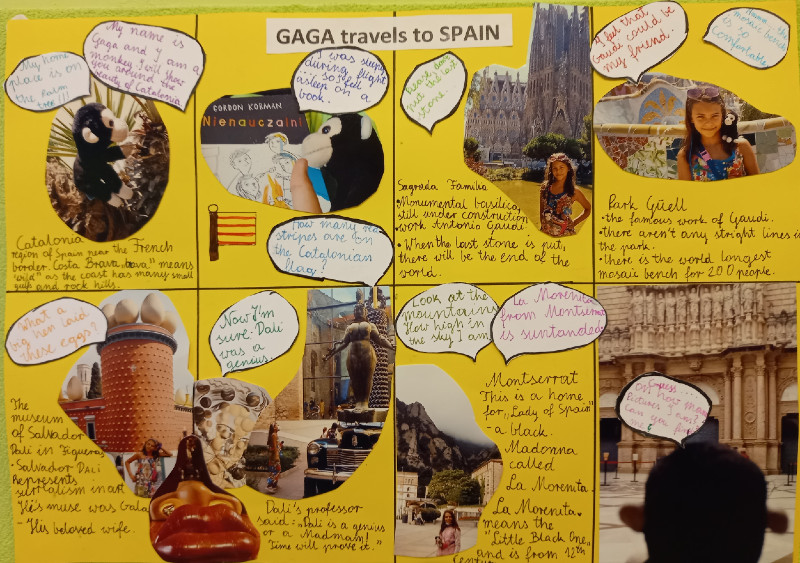 GAGA travels to SPAIN
My home
place is on
the palm
tree!!!
My name is
Gaga and y am a
monkey. I will show
you around the
beauty of Catalonia
Catalonia
region of Spain near the French
border. Costa Brava „brava" means
"wild" as the coast has many small
gulfs and rock hills.
I was sleepy
during flight
... so I fell
asleep on a
book.
GORDON KORMAN
Nienauczalni
How many red
stripes are on
the Catalonian
flag?
Please, don't
put the last
stone.
Sagrada Familia
Monumental basilica,
still under construction
work Antonio Gaudi.
• When the last stone is put,
there will be the end of the
world.
I feel that
Gaudi could be
my friend.
mosaic bench
is so
comfortable.
Park Güell
• the famous work of Gaudi.
• there aren't any stright lines in
the park.
• there is the world longest
mosaic bench for 200 people.
What a
big hen laid
these eggs?
The
museum
of Salvador
Dali in Figueras
• Salvador Dali
Represents
surrealism in art
His muse was Gala
- His beloved wife.
Now I'm
sure. Dali
was a
genius.
Dali's professor
said: „Dali is a genius
or a Madman!
Time will prove it."
Look at the
mountains
How high in
the sky I am
La Morenita
from Montserrat
is suntanded
Montserrat
This is a home
for „Lady of Spain"
- a black
Madonna
called
La Morenita.
La Morenita
means the
"Little Black One"
and is from 12th
Century
On how many
pictures
can you find
me?